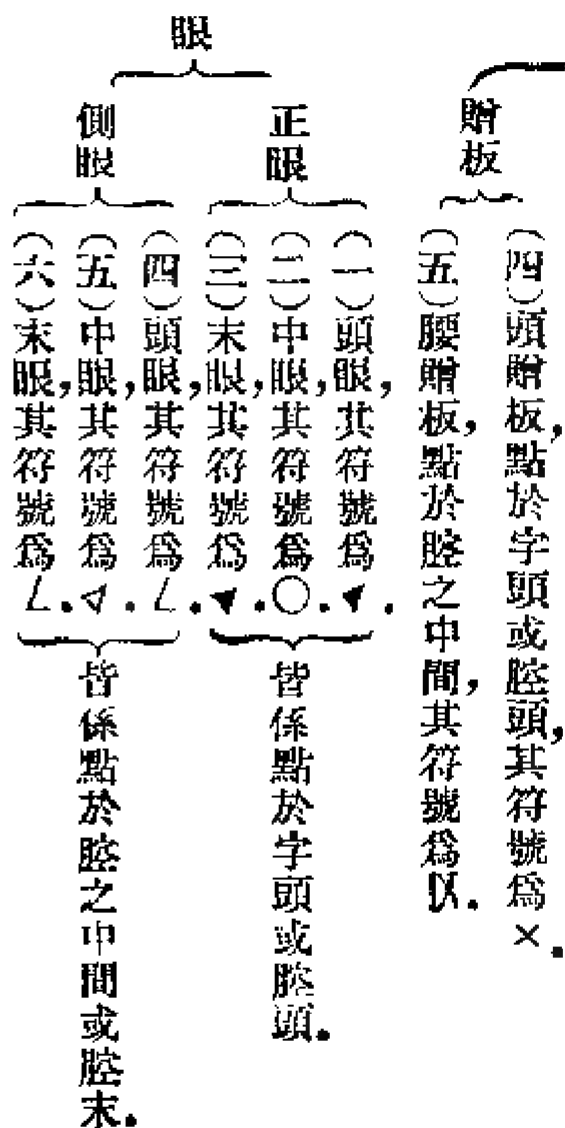 贈板
(四)頭贈板,點於字頭或腔頭,其符號為×.
(五)腰贈板,點於腔之中間,其符號為.
眼
正眼
(一)頭眼,其符號為▼.
(二)中眼,其符號為○.
(三)末眼,其符號為▼.
皆係點於字頭或腔頭.
側眼
(四)頭眼,其符號為ㄥ.
(五)中眼,其符號為◁.
(六)末眼,其符號為ㄥ.
皆係點於腔之中間或腔末.